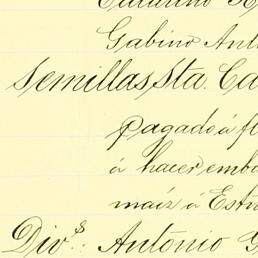 Gabino Ant
Semillas Sta. Ca
pagado á fl
á hacer emb
maíz á Est
Divs. Antonio G